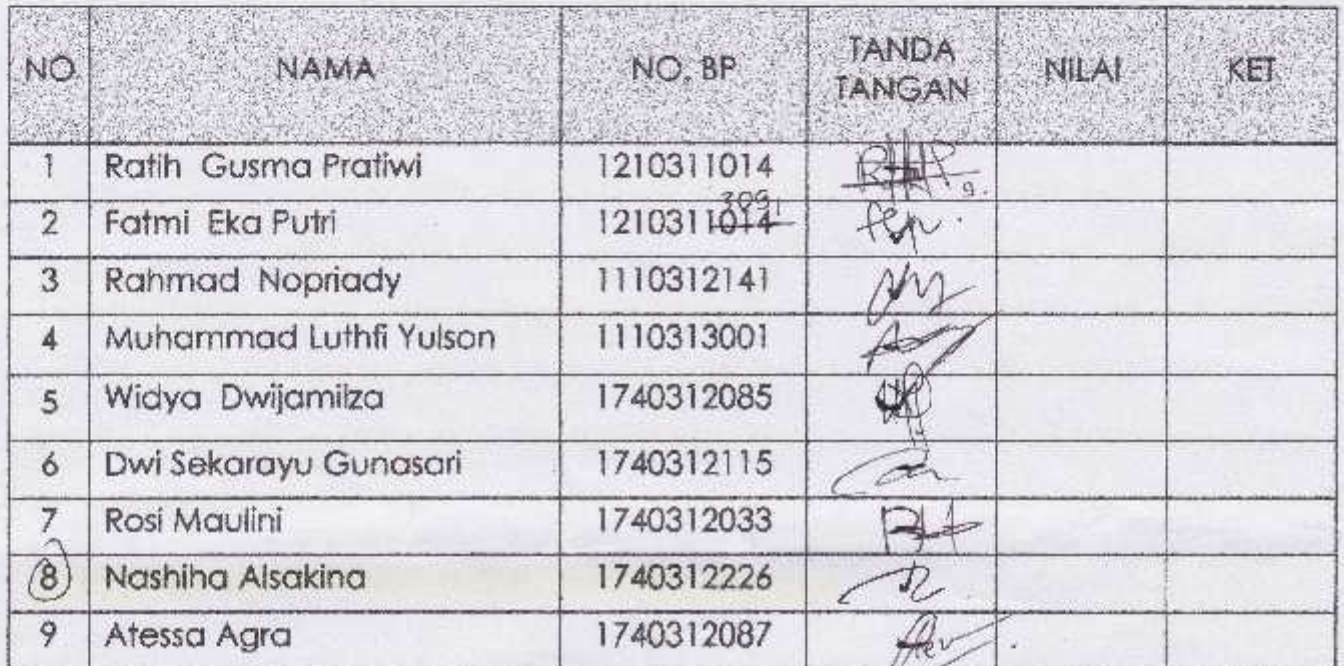 NO NAMA NO. BP TANDA TANGAN NILAI KET
1 Ratih Gusma Pratiwi 1210311014
2 Fatmi Eka Putri 1210311014
3 Rahmad Nopriady 1110312141
4 Muhammad Luthfi Yulson 1110313001
5 Widya Dwijamilza 1740312085
6 Dwi Sekarayu Gunasari 1740312115
7 Rosi Maulini 1740312033
8 Nashiha Alsakina 1740312226
9 Atessa Agra 1740312087